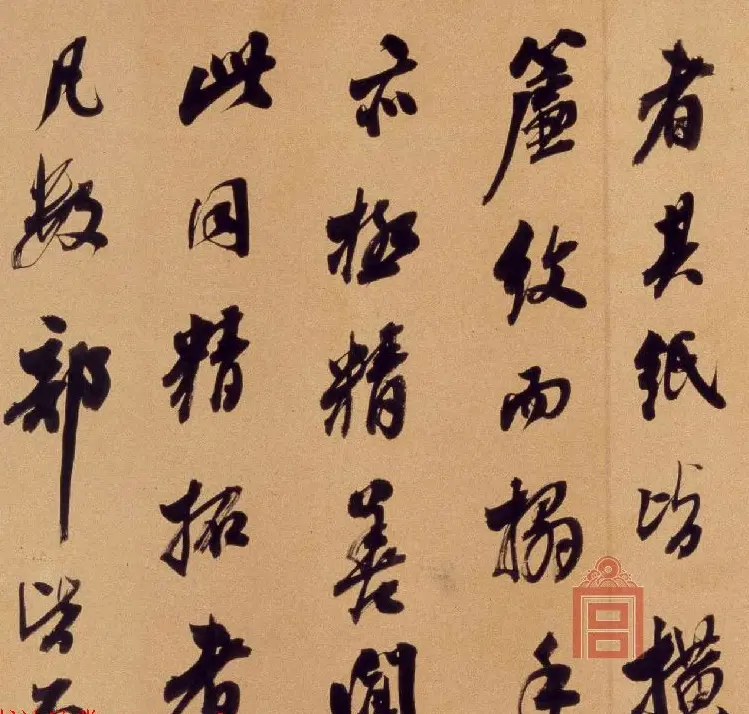 者其紙皆橫
簾紋而搨手
亦極精善
此同精拓者
凡數部皆